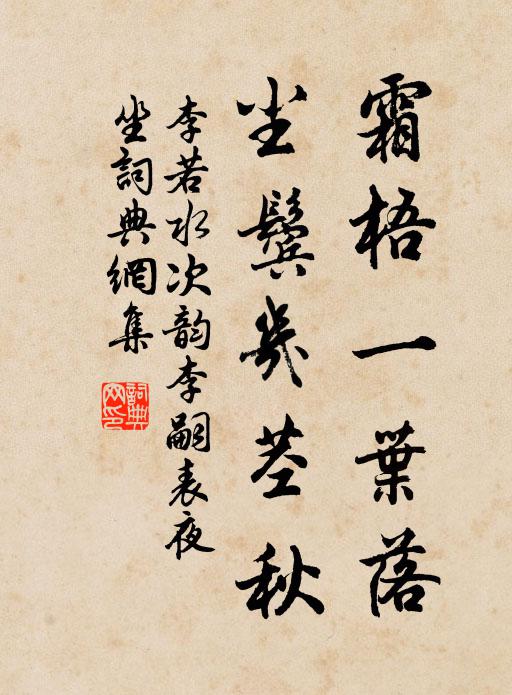 霜梧一葉落
尘鬓幾茎秋
李若水次韵李嗣表夜
坐詞典網集
詞典网印